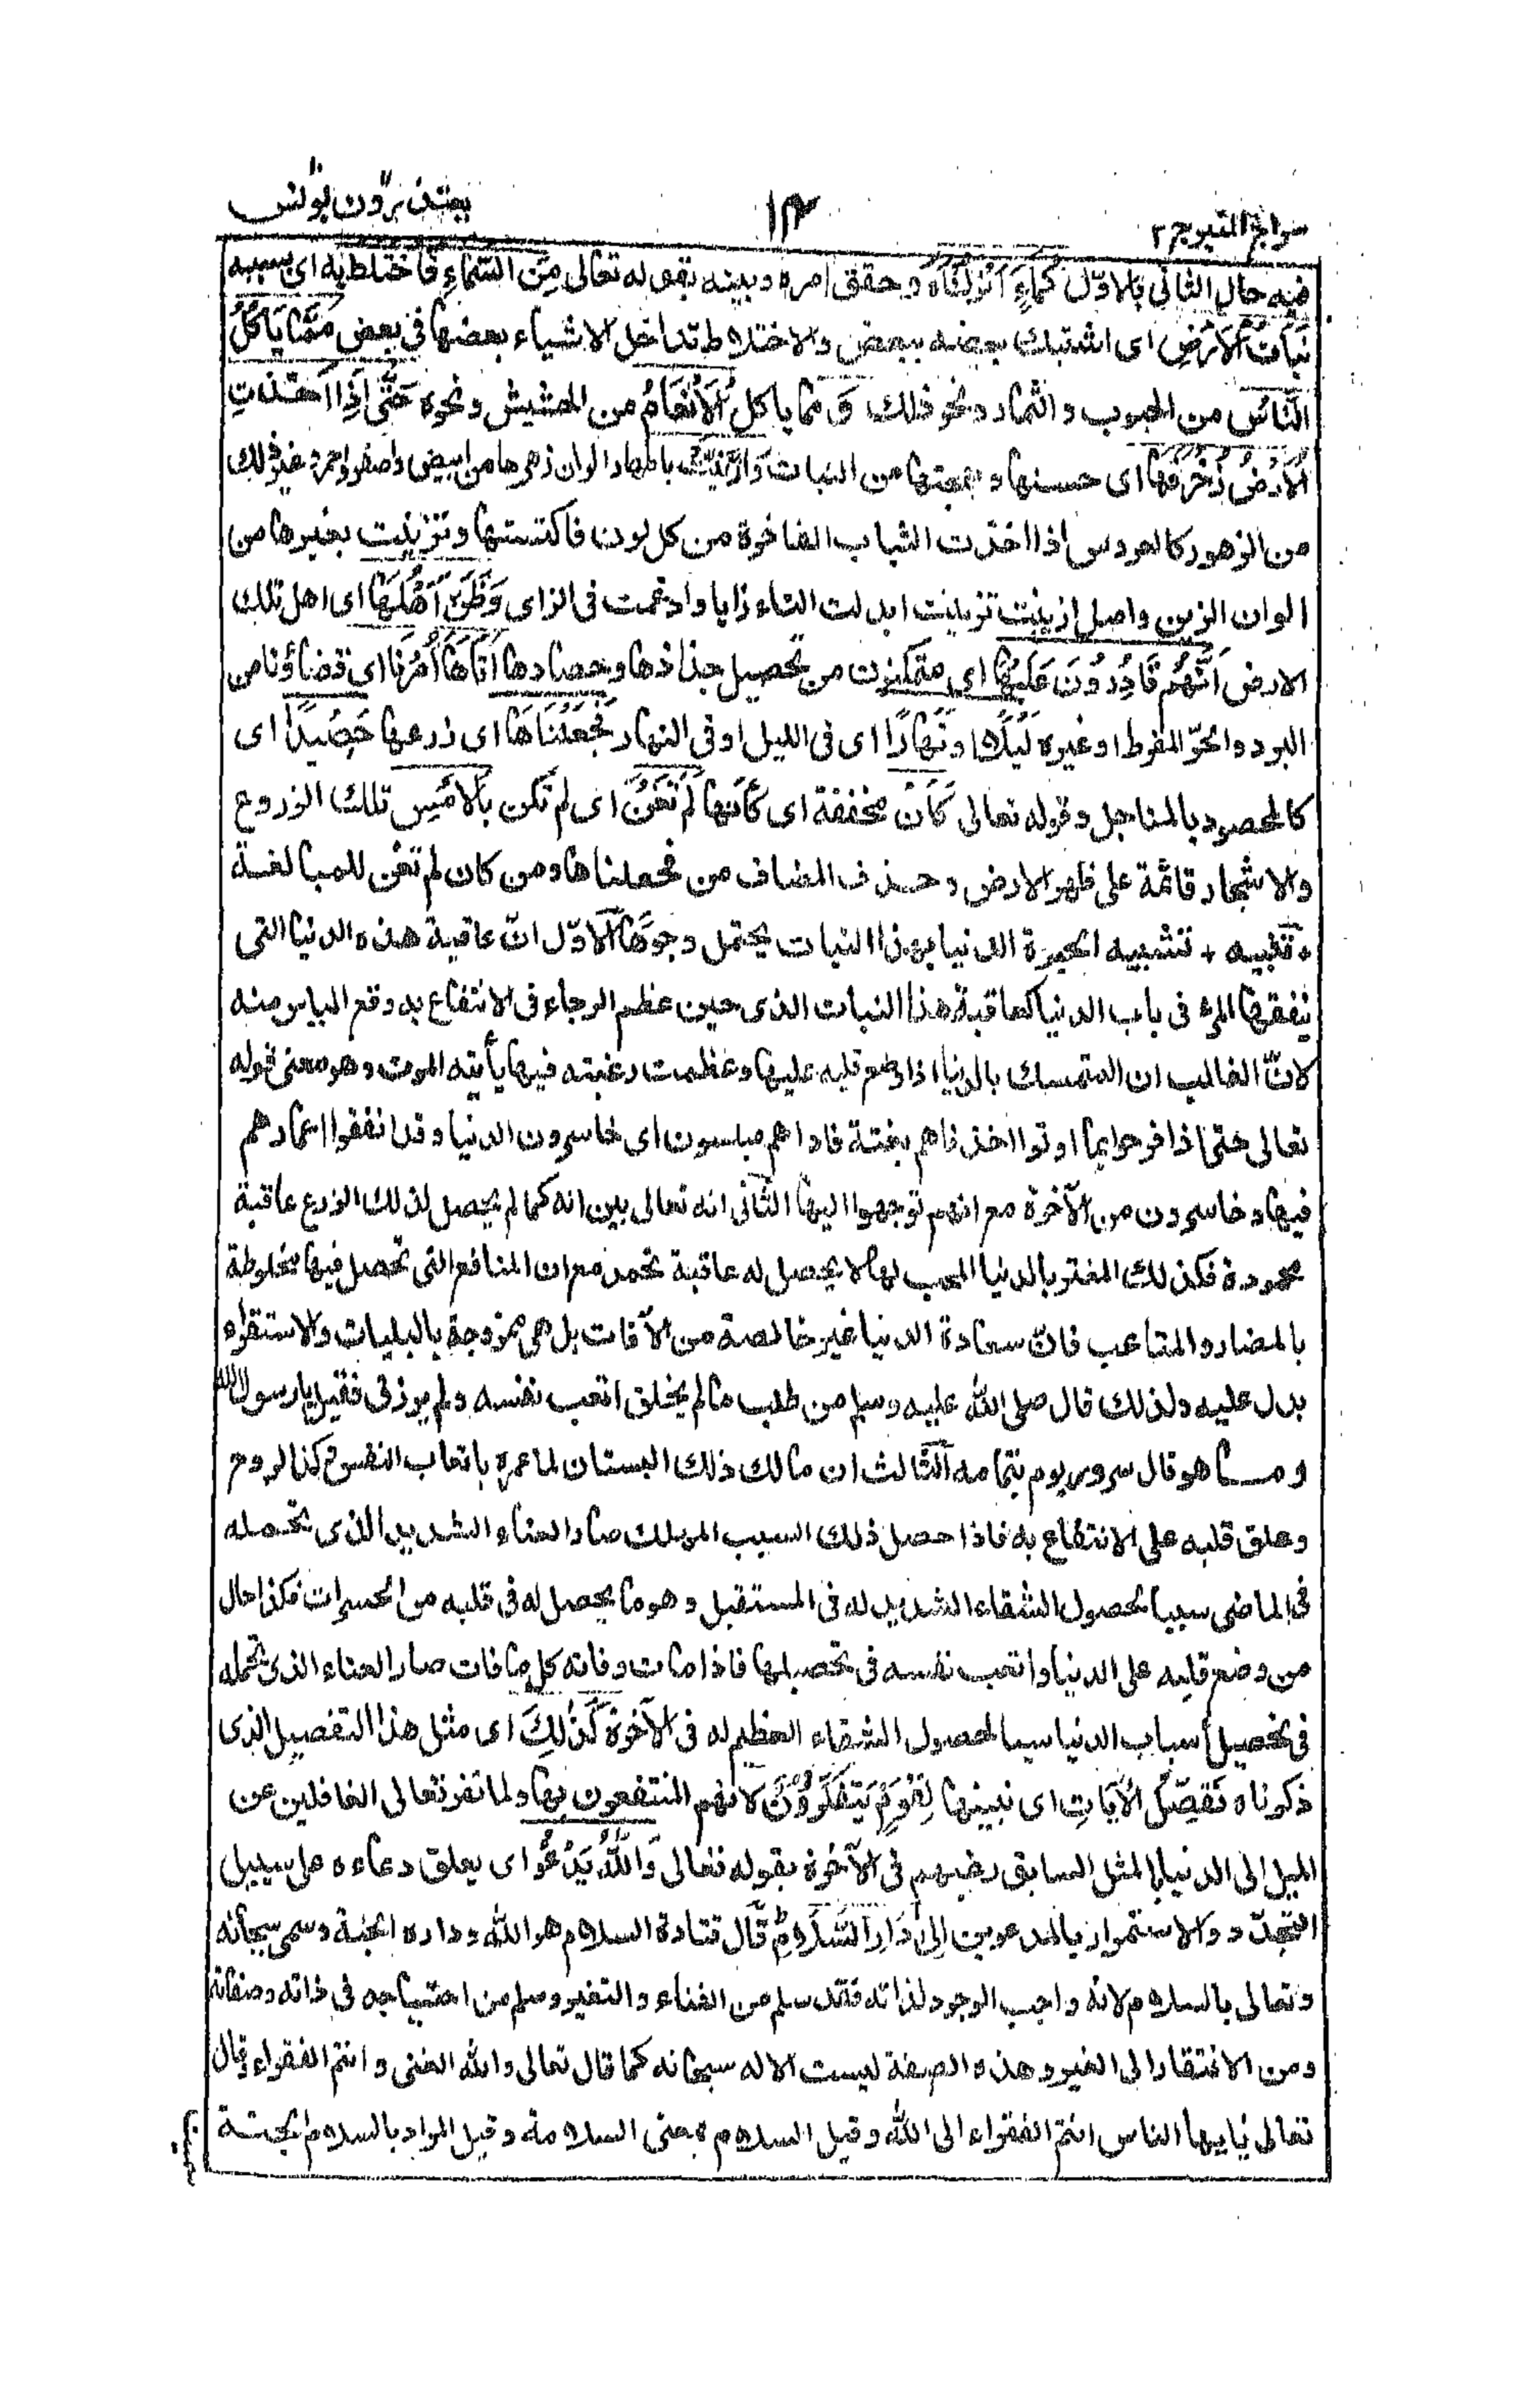 سراج المنير ج ٢
١٢
يعتذرون يونس
فيه حال الثانى بالاوّل كَمَاءٍ اَنْزَلْنَاهُ وحقق امره وبينه بقوله تعالى مِنَ السَّمَاءِ فَاخْتَلَطَ بِهٖ اى بسببه
نَبَاتُ الْاَرْضِ اى اشتبك بعضه ببعض والاختلاط تداخل الاشياء بعضها فى بعض مِمَّا يَاْكُلُ
النَّاسُ من الحبوب والثمار ونحو ذلك وَ مما ياكل الْاَنْعَامُ من الحشيش ونحوه حَتّٰى اِذَا اَخَذَتِ
الْاَرْضُ زُخْرُفَهَا اى حسنها وبهجتها من النبات وَازَّيَّنَتْ باظهار الوان زهرها من ابيض واصفر واحمر وغير ذلك
من الزهور كالعروس اذا اخذت الثياب الفاخرة من كل لون فاكتستها وتزينت بغيرها من
الوان الزين واصل ازينت تزينت ابدلت التاء زايا وادغمت فى الزاى وَظَنَّ اَهْلُهَا اى اهل تلك
الارض اَنَّهُمْ قَادِرُوْنَ عَلَيْهَا اى متمكنون من تحصيل جذاذها وحصادها اَتَاهَا اَمْرُنَا اى قضاؤنا من
البرد والحرّ المفرط او غيره لَيْلًا او نَهَارًا اى فى الليل او فى النهار فَجَعَلْنَاهَا اى زرعها حَصِيْدًا اى
كالمحصود بالمناجل وقوله تعالى كَاَنْ مخففة اى كأنها لَمْ تَغْنَ اى لم تكن بِالْاَمْسِ تلك الزروع
والاشجار قائمة على ظهر الارض وحذف المضاف من فجعلناها ومن كان لم تغن للمبالغة
+ تنبيه + تشبيه الحيوة الدنيا بهذا النبات يحتمل وجوها الاوّل انّ عاقبة هذه الدنيا التى
ينفقها المرء فى باب الدنيا كعاقبة هذا النبات الذى حين عظم الرجاء فى الانتفاع به وقع الياس منه
لانّ الغالب ان المتمسك بالدنيا اذا وضع قلبه عليها وعظمت رغبته فيها يأتيه الموت وهو معنى قوله
تعالى حتى اذا فرحوا بما اوتوا اخذناهم بغتة فاذا هم مبلسون اى خاسرون الدنيا وقد انفقوا اعمارهم
فيها وخاسرون من الآخرة مع انهم توجهوا اليها الثانى انه تعالى بين انه كما لم يحصل لذلك الزرع عاقبة
محمودة فكذلك المغتر بالدنيا المحب لها لا يحصل له عاقبة تحمد مع ان المنافع التى تحصل فيها مخلوطة
بالمضار والمتاعب فانّ سعادة الدنيا غير خالصة من الآفات بل هى ممزوجة بالبليات والاستقراء
يدل عليه ولذلك قال صلى الله عليه وسلم من طلب ما لم يخلق اتعب نفسه ولم يرزق فقيل يا رسول الله
وما هو قال سرور يوم بتمامه الثالث ان مالك ذلك البستان لما عمره باتعاب النفس وكد الروح
وعلق قلبه على الانتفاع به فاذا حصل ذلك السبب المهلك صار العناء الشديد الذى تحمله
فى الماضى سببا لحصول الشقاء الشديد له فى المستقبل وهو ما يحصل له فى قلبه من الحسرات فكذا حال
من وضع قلبه على الدنيا واتعب نفسه فى تحصيلها فاذا مات وفاته كل ما فات صار العناء الذى تحمله
فى تحصيل أسباب الدنيا سببا لحصول الشقاء العظيم له فى الآخرة كَذٰلِكَ اى مثل هذا التفصيل الذى
ذكرناه نُفَصِّلُ الْاٰيَاتِ اى نبينها لِقَوْمٍ يَتَفَكَّرُوْنَ لانهم المنتفعون بها ولما نفر تعالى الغافلين عن
الميل الى الدنيا بالمثل السابق رغبهم فى الآخرة بقوله تعالى وَاللّٰهُ يَدْعُوْا اى يعلق دعاءه على سبيل
التجدّد والاستمرار بالمدعوين اِلٰى دَارِ السَّلَامِ قال قتادة السلام هو الله وداره الجنة وسمى سبحانه
وتعالى بالسلام لانه واجب الوجود لذاته فقد سلم من الفناء والتغير وسلم من احتياجه فى ذاته وصفاته
ومن الافتقار الى الغير وهذه الصفة ليست الا له سبحانه كما قال تعالى والله الغنى وانتم الفقراء وقال
تعالى يايها الناس انتم الفقراء الى الله وقيل السلام بمعنى السلامة وقيل المراد بالسلام الجنة